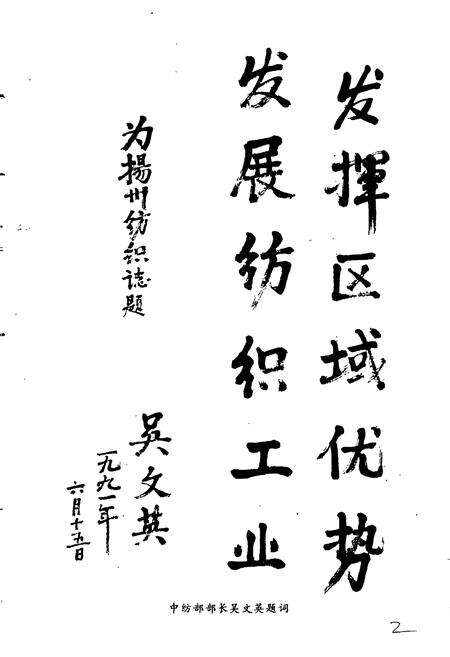 发揮区域优势
发展纺织工业
为揚州纺织誌題
吴文英
一九九一年
六月十五日
中纺部部长吴文英题词
2